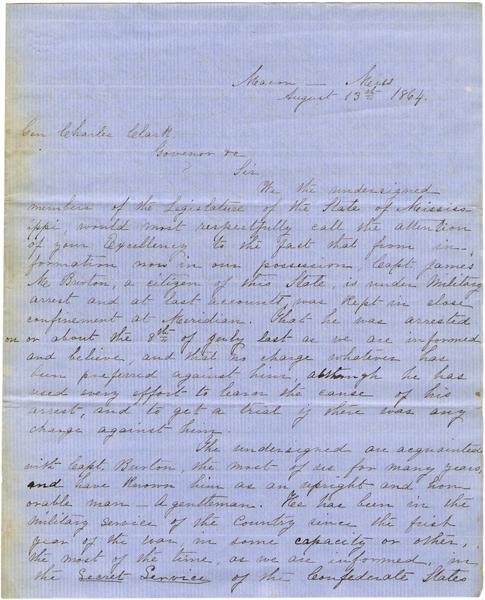 Macon — Miss
August 13th 1864.
Gen Charles Clark
Govenor &c
Sir
We the undersigned
members of the Legislature of the State of Mississ-
ippi, would most respectfully call the attention
of your Excellency to the fact that from in-
formation now in our possession, Capt. James
M. Buxton, a citizen of this State, is under Military
arrest and at last accounts, was Kept in close
confinement at Meridian. That he was arrested
on or about the 8th of July last as we are informed
and believe, and that no charge whatever has
been preferred against him, although he has
used every effort to learn the cause of his
arrest, and to get a trial if there was any
charge against him.
The undersigned are acquainted
with Capt. Buxton, the most of us for many years,
and have Known him as an upright and hon-
orable man — A gentleman. He has been in the
military service of the Country since the first
year of the war, in some capacity or other,
the most of the time, as we are informed, in
the Secret Service of the Confederate States